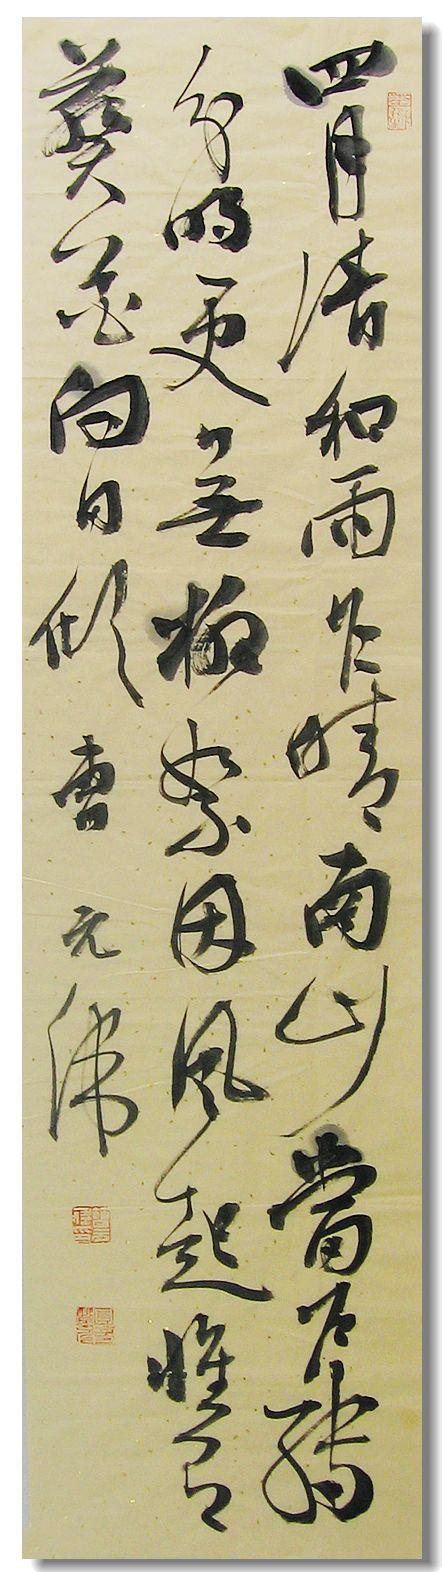 四月清和雨乍晴南山當户轉
分明更無柳絮因風起惟有
葵花向日傾 曹元